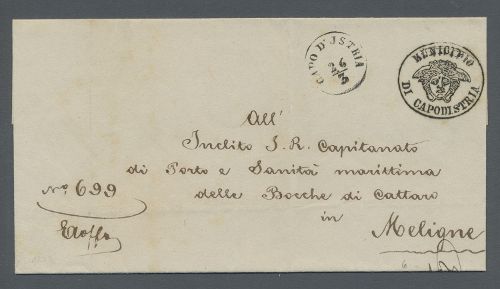 CAPO D'ISTRIA
6
MUNICIPIO
DI CAPODISTRIA
All'
Inclito I. R. Capitanato
di Porto e Sanità marittima
delle Bocche di Cattaro
in
Meligne
No. 699